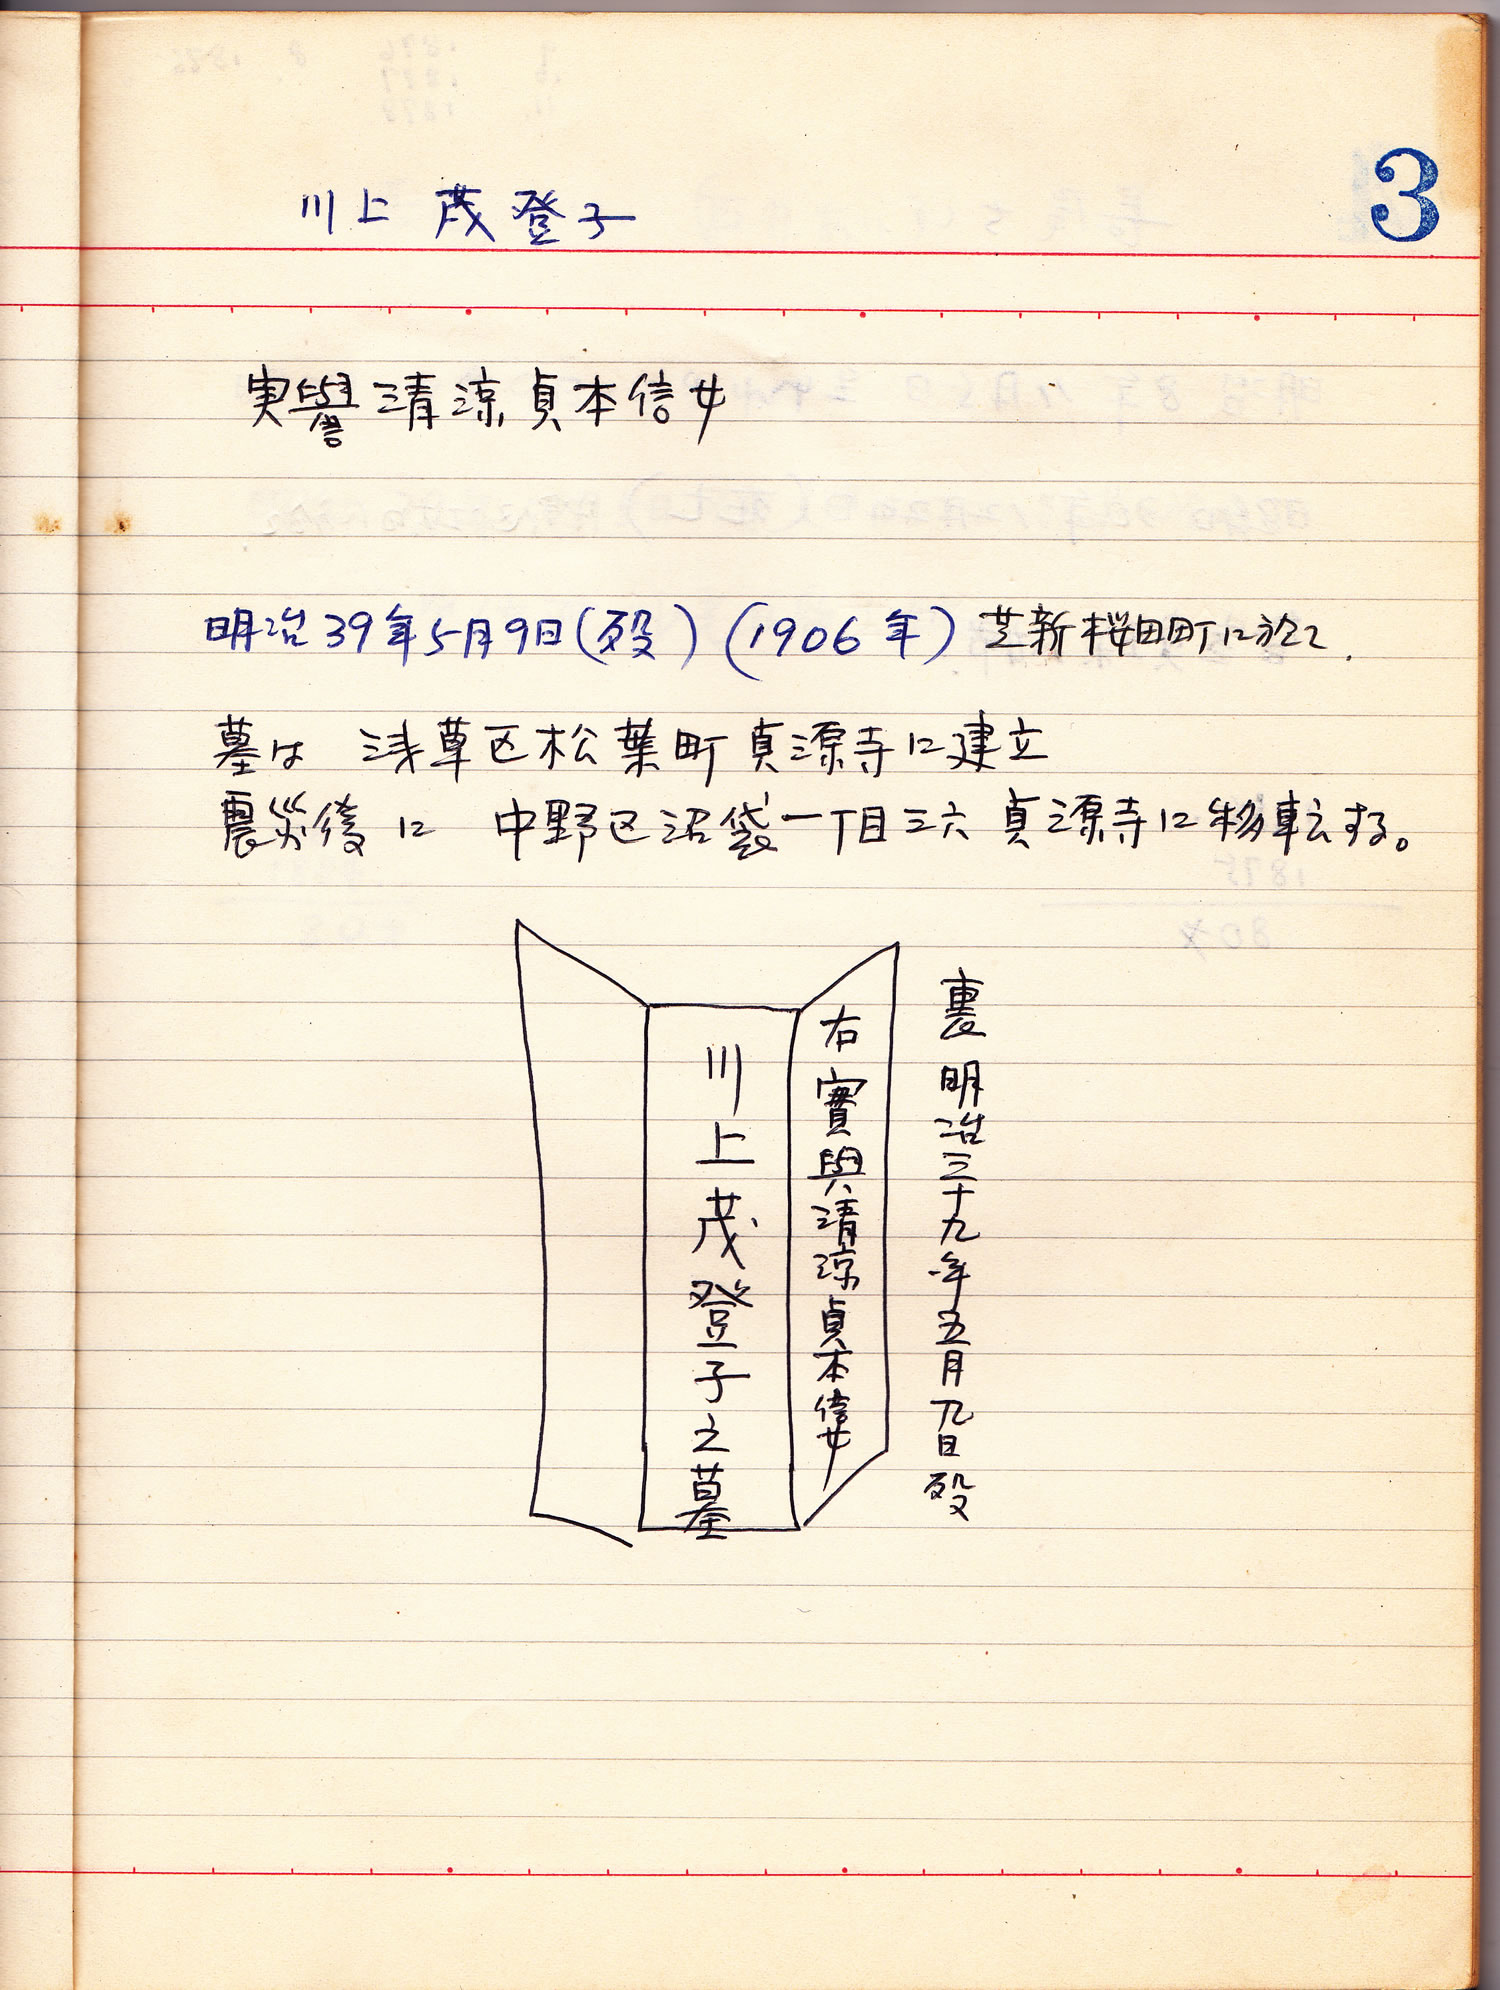 3
川上 茂登子
実譽清涼貞本信女
明治39年5月9日(歿)(1906年)芝新桜田町に於て.
墓は 浅草区松葉町貞源寺に建立
震災後に 中野区沼袋一丁目三六 貞源寺に移転する。
裏 明治三十九年五月九日歿
右 實與清涼貞本信女
川上茂登子之墓